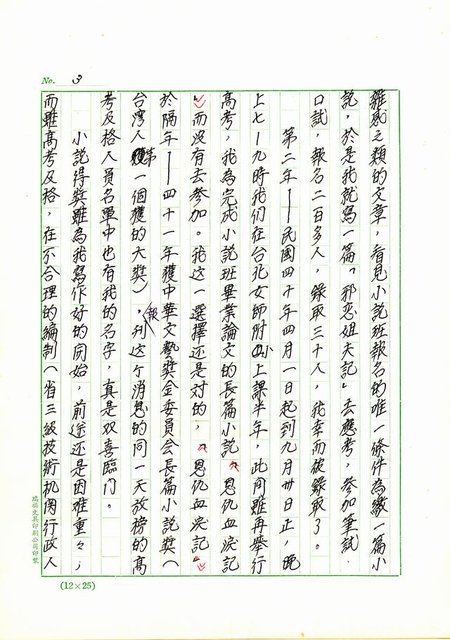 No. 3
雜感之類的文章,看見小說班報名的唯一條件為繳一篇小
說,於是我就寫一篇「邪恋姐夫記」去應考,參加筆試、
口試,報名二百多人,錄取三十人,我幸而被錄取了。
第二年——民國四十年四月一日起到九月卅日正,晚
上七-九時我們在台北女師附小上課半年,此间雖再舉行
高考,我為完成小說班畢業論文的長篇小說「恩仇血淚記
」而沒有去參加。我这一選擇还是对的,「恩仇血淚記」
於隔年——四十一年獲中華文藝獎金委員会長篇小說獎(
台灣人第一個獲的大獎),报刊这个消息的同一天放榜的高
考及格人員名單中也有我的名字,真是双喜臨门。
小說得獎雖為我寫作好的開始,前途还是困难重々;
而雖高考及格,在不合理的編制(省三級技術机関行政人
(12×25)